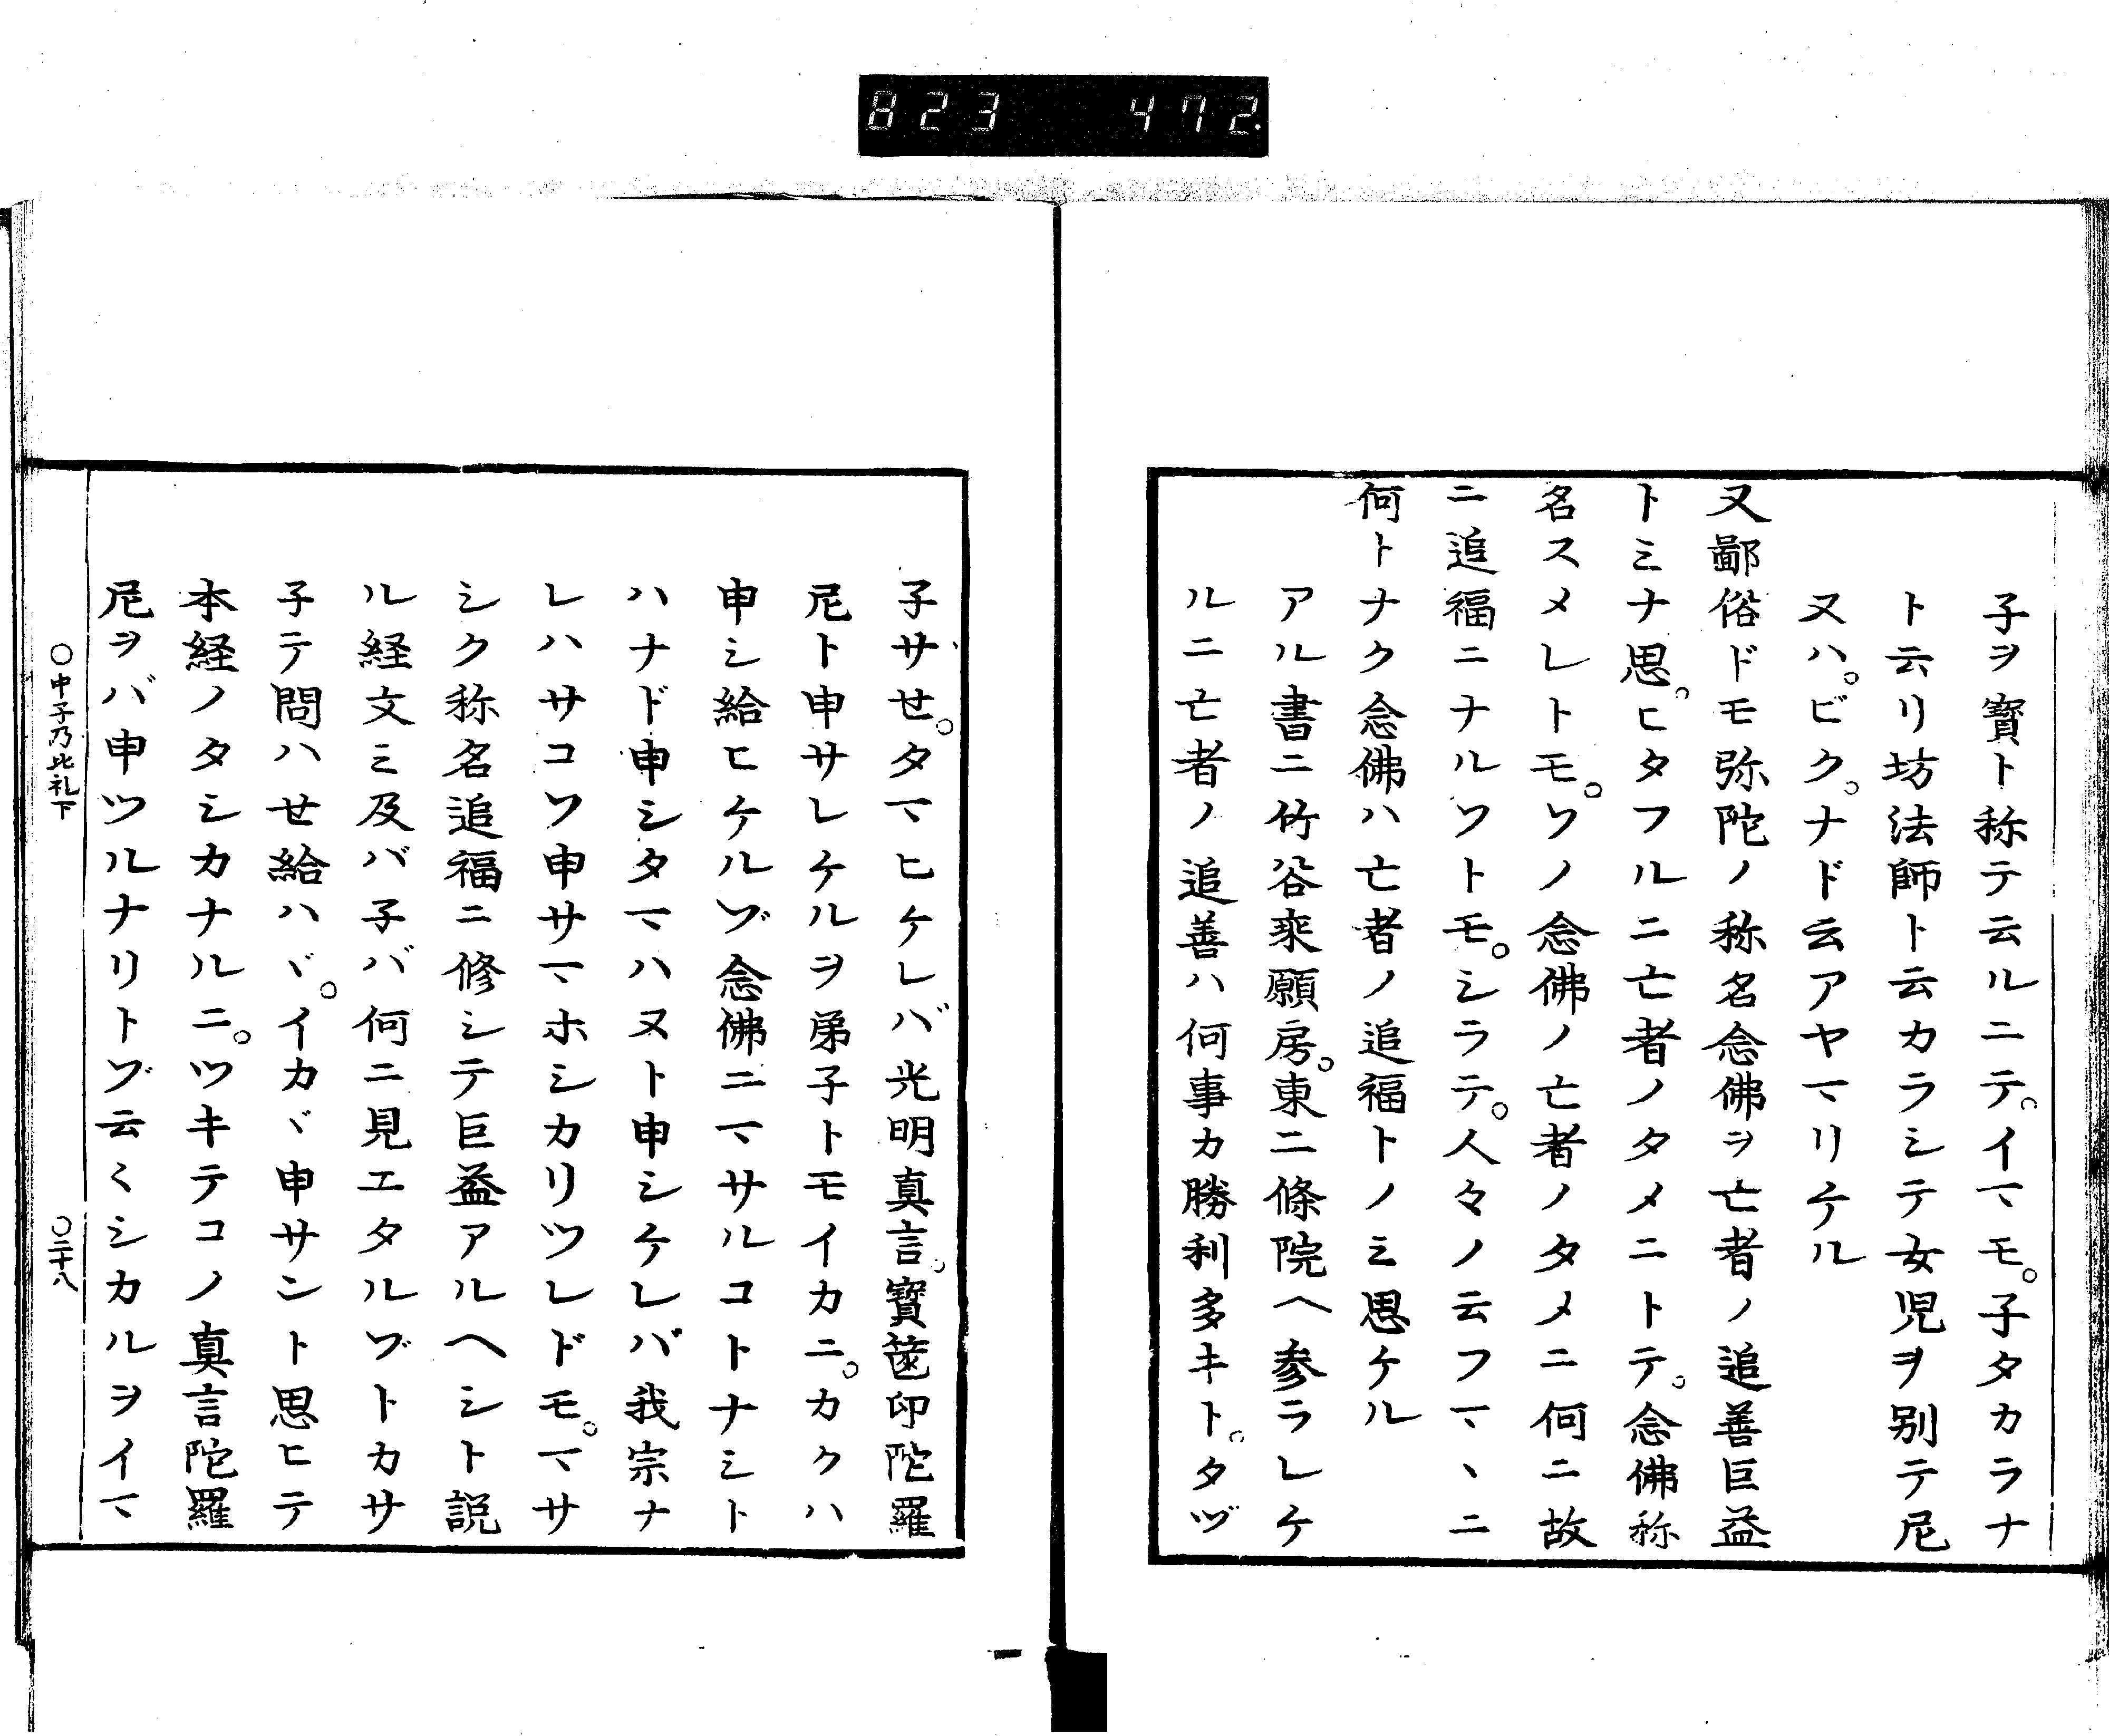 823 472.
子ヲ寳ト称テ云ルニテ。イマモ。子タカラナ
ト云リ坊法師ト云カラシテ女児ヲ別テ尼
又ハ。ビク。ナド云アヤマリケル
又鄙俗ドモ弥陀ノ称名念佛ヲ亡者ノ追善巨益
トミナ思。ヒタフルニ亡者ノタメニトテ。念佛称
名スメレトモ。ソノ念佛ノ亡者ノタメニ何ニ故
ニ追福ニナルソトモ。シラテ。人々ノ云フマヽニ
何トナク念佛ハ亡者ノ追福トノミ思ケル
アル書ニ竹谷乗願房。東二條院ヘ参ラレケ
ルニ亡者ノ追善ハ何事カ勝利多キト。タヅ
子サせ。タマヒケレバ光明真言。寳篋印陀羅
尼ト申サレケルヲ弟子トモイカニ。カクハ
申シ給ヒケルゾ念佛ニマサルコトナシト
ハナド申シタマハヌト申シケレバ我宗ナ
レハサコソ申サマホシカリツレドモ。マサ
シク称名追福ニ修シテ巨益アルヘシト説
ル経文ミ及バ子バ何ニ見エタルゾトカサ
子テ問ハせ給ハヾ。イカヾ申サント思ヒテ
本経ノタシカナルニ。ツキテコノ真言陀羅
尼ヲバ申ツルナリトゾ云〻シカルヲイマ
〇中子乃比礼下 〇二十八